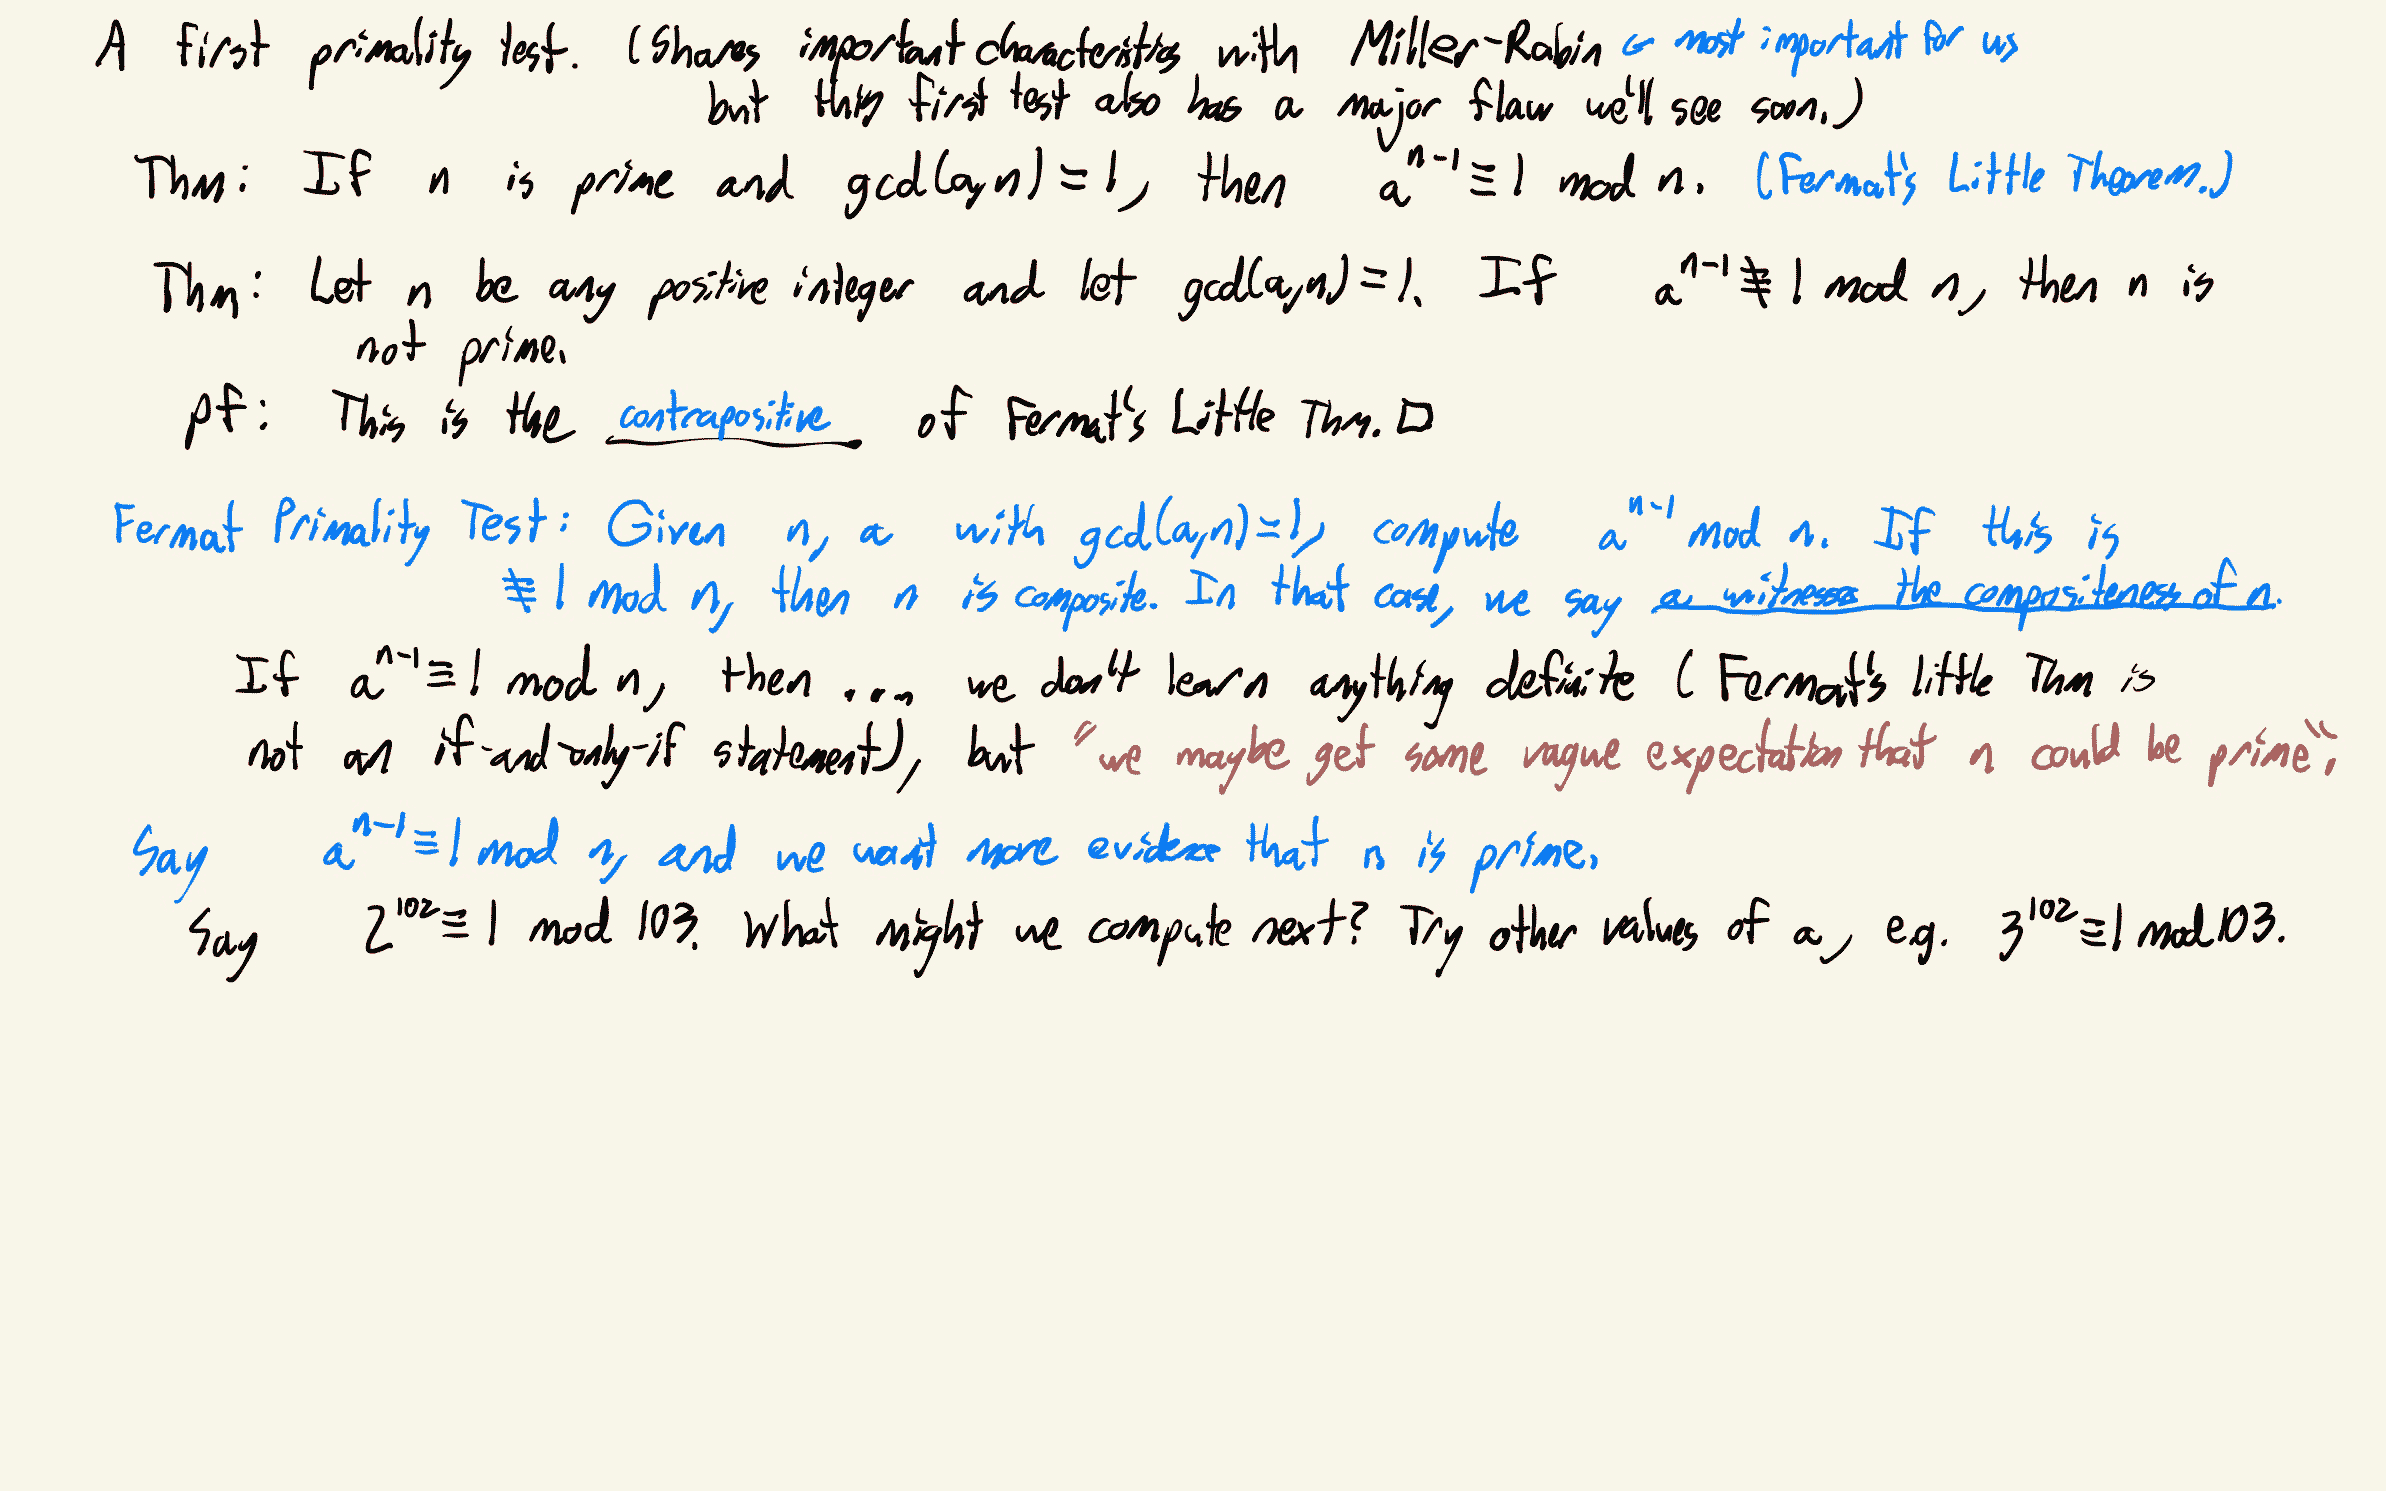 A first primality test. (Shares important characteristics with Miller-Rabin ← most important for us
but this first test also has a major flaw we'll see soon.)
Thm: If n is prime and gcd(a,n)=1, then a^{n-1} ≡ 1 mod n. (Fermat's Little Theorem.)
Thm: Let n be any positive integer and let gcd(a,n)=1. If a^{n-1} ≢ 1 mod n, then n is
not prime.
pf: This is the contrapositive of Fermat's Little Thm. □
Fermat Primality Test: Given n, a with gcd(a,n)=1, compute a^{n-1} mod n. If this is
≢ 1 mod n, then n is composite. In that case, we say a witnesses the compositeness of n.
If a^{n-1} ≡ 1 mod n, then .... we don't learn anything definite (Fermat's little Thm is
not an if-and-only-if statement), but "we maybe get some vague expectation that n could be prime".
Say a^{n-1} ≡ 1 mod n, and we want more evidence that n is prime.
Say 2^{102} ≡ 1 mod 103. What might we compute next? Try other values of a, e.g. 3^{102} ≡ 1 mod 103.